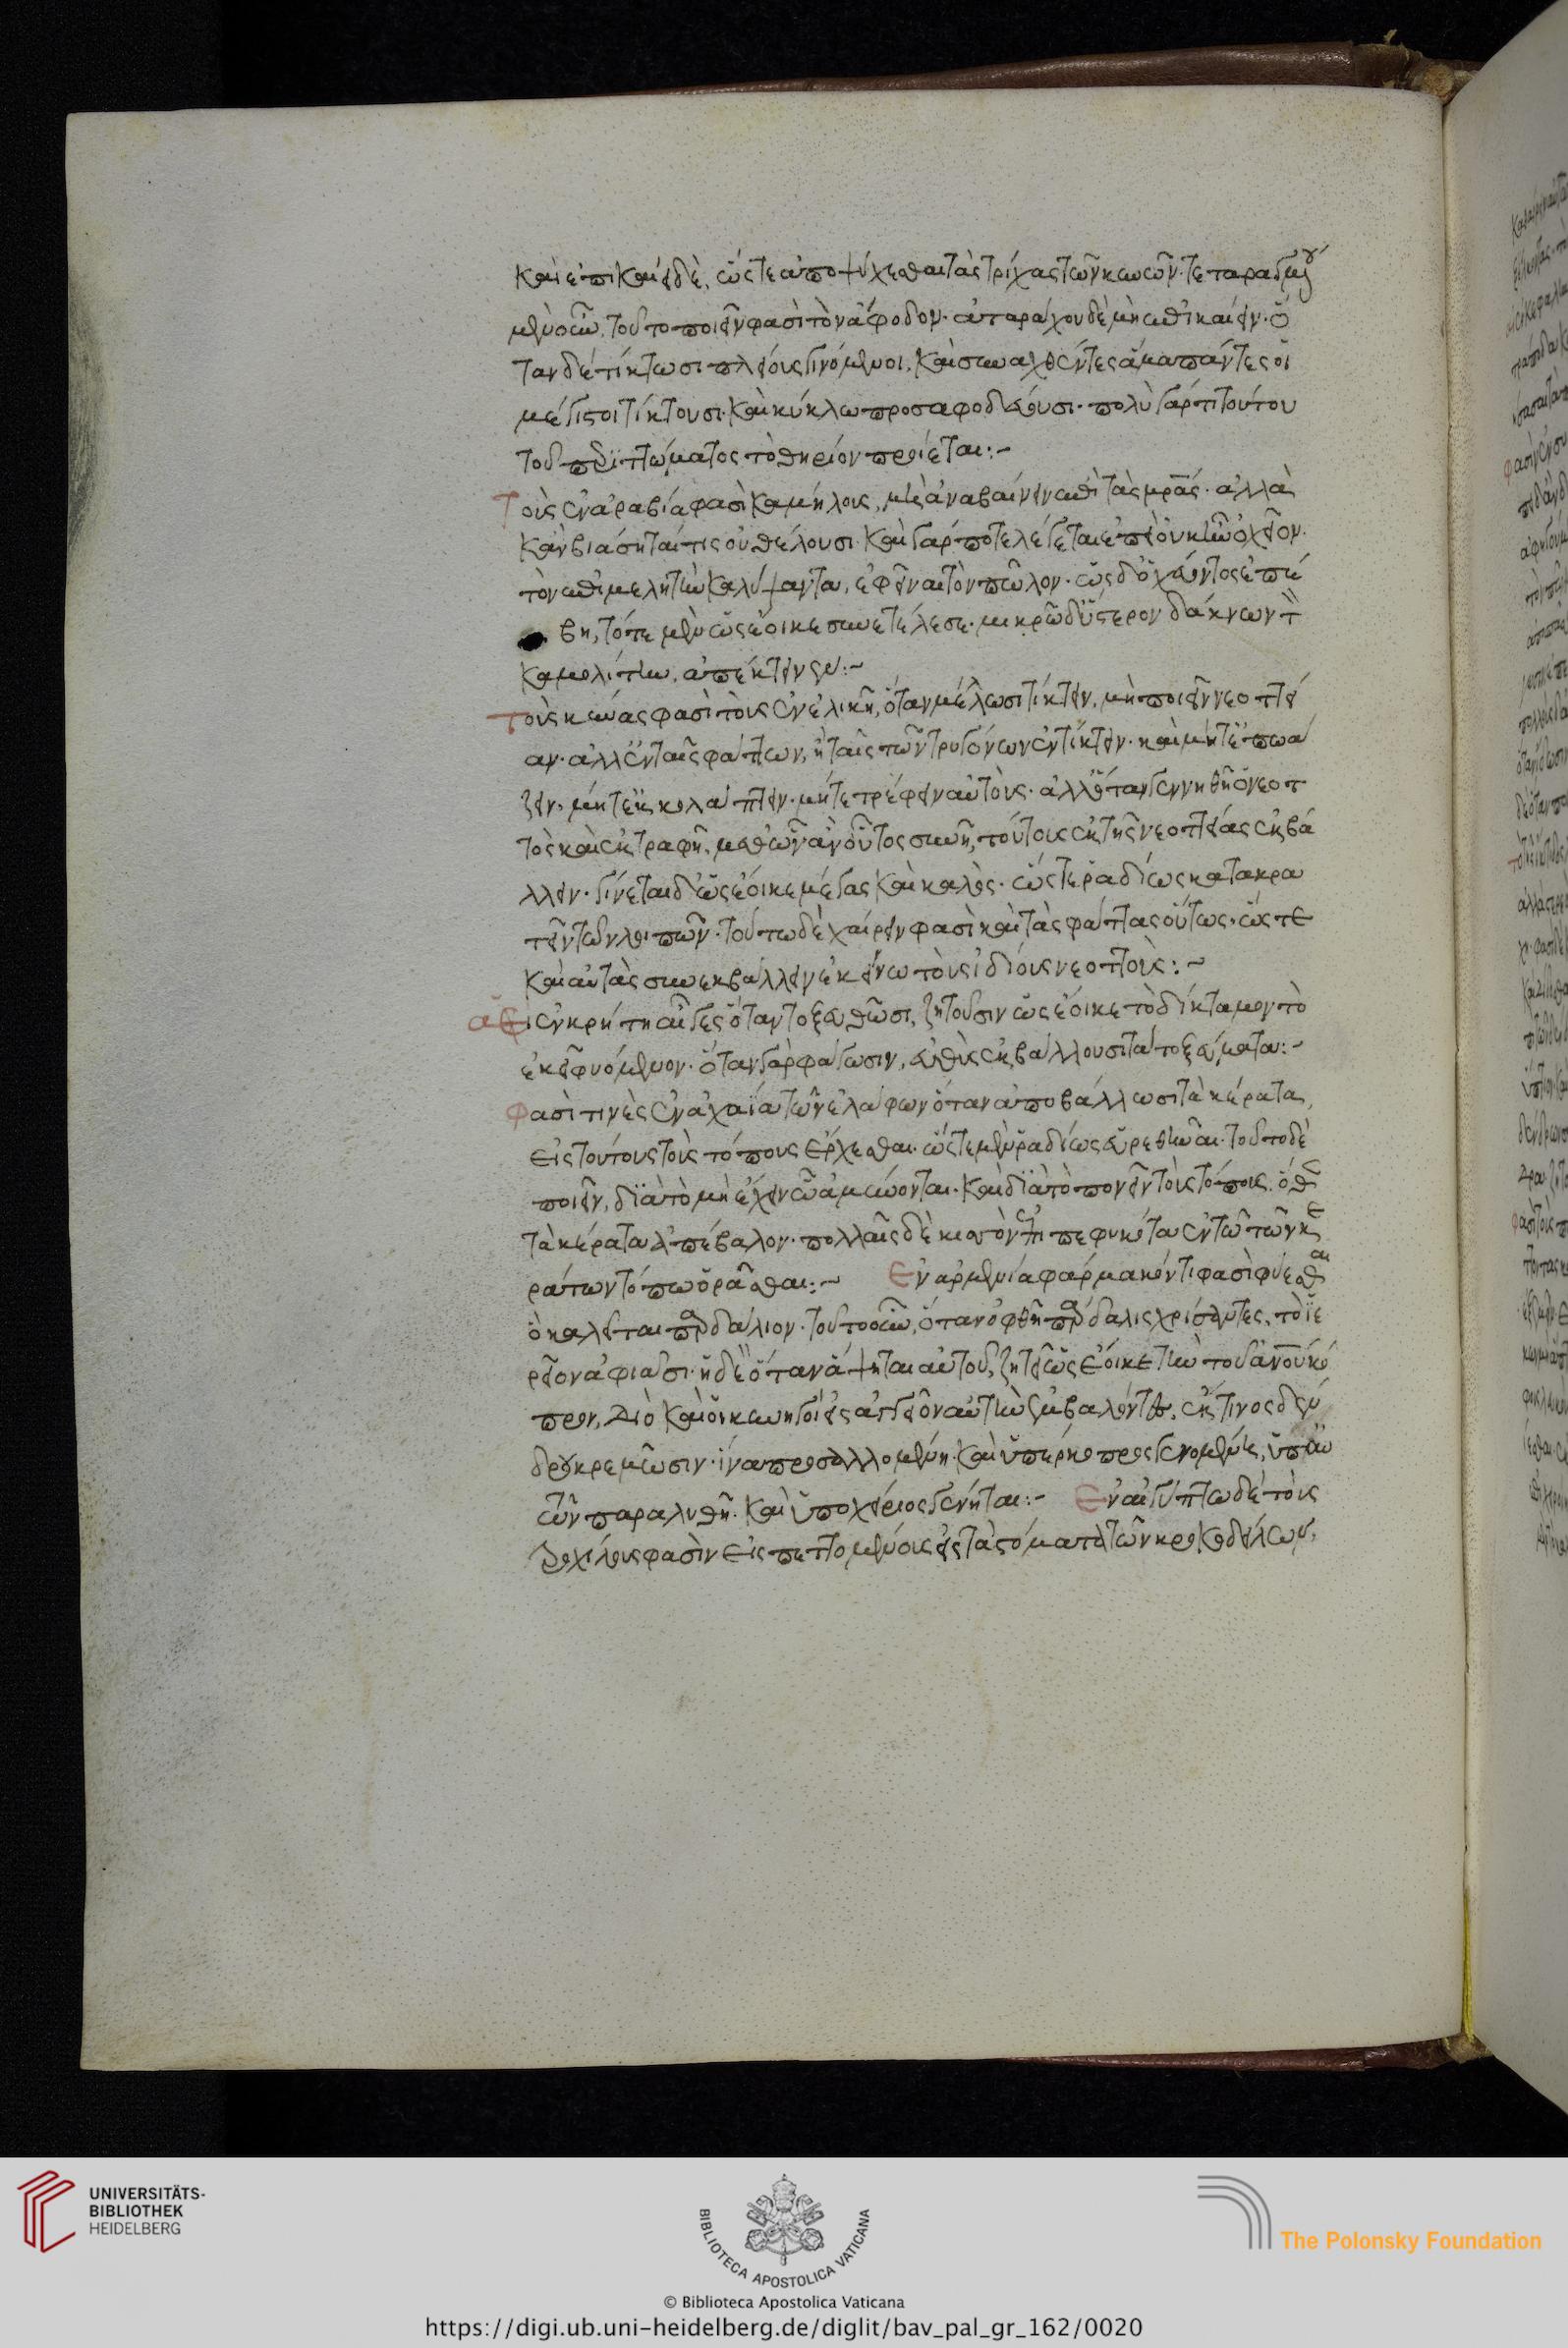 καὶ ἐπικαίει δὲ, ὥστε ἀποψύχεσθαι τὰς τρίχας τῶν κυνῶν. τεταραγμέ
μένον οὖν, τοῦτο ποιεῖν φασὶ τὸν ἄφοδον. ἀταράχου δὲ μὴ ἐπικαίειν. ὅ
ταν δὲ τίκτωσι πλείους γινόμενοι, καὶ συναχθέντες ἅμα πάντες οἱ
μέγιστοι τίκτουσι. καὶ κύκλω προσαφοδεύουσι. πολὺ γάρ τι τούτου
τοῦ περιττώματος τὸ θηρίον προίεται:~
Τοὺς ἐν ἀραβία φασὶ καμήλους, μὴ ἀναβαίνειν ἐπὶ τὰς μητέρας. ἀλλὰ
κἂν βιάσηταί τις οὐ θέλουσι. καὶ γάρ ποτε λέγεται ἐπεὶ οὐκ ἦν ὀχεῖον.
τὸν ἐπιμελητὴν καλύψαντα, ἐφεῖναι τὸν πῶλον. ὡς δ' ὀχεύοντος ἐπέ
βη, τότε μὲν ὡς ἔοικε συνετέλεσε. μικρῶ δ' ὕστερον δάκνων τὸν
καμηλίτην, ἀπέκτεινεν:~
Τοὺς κίυας φασὶ τοὺς ἐν ἑλίκη, ὅταν μέλλωσι τίκτειν, μὴ ποιεῖν νεοττεί
αν. ἀλλ' ἐν ταῖς φαττῶν, ἢ ταῖς τῶν τρυγόνων ἐντίκτειν. καὶ μήτε ἐπωά
ζειν, μήτε ἐκκολάπτειν. μήτε τρέφειν αὐτοὺς. ἀλλ' ὅταν γεννηθῆ ὁ νεοτ
τὸς καὶ ἐκτραφῆ, μεθ' ὧν ἂν οὗτος συνῆ, τούτους ἐκ τῆς νεοττείας ἐκβά
λλειν. γίνεται δ' ὡς ἔοικε μέγας καὶ καλὸς. ὥστε ῥαδίως κατακρα
τεῖν τῶν λοιπῶν. τούτω δὲ χαίρειν φασὶ καὶ τὰς φάττας οὕτως. ὥστε
καὶ αὐτὰς συνεκβάλλειν ἐκείνω τοὺς ἰδίους νεοττοὺς:~
αἱ ἐν κρήτη αἶγες ὅταν τοξευθῶσι, ζητοῦσιν ὡς ἔοικε τὸ δίκταμον τὸ
ἐκεῖ φυόμενον. ὅταν γὰρ φάγωσιν, εὐθὺς ἐκβάλλουσι τὰ τοξεύματα:~
Φασὶ τινὲς ἐν ἀχαΐα τῶν ἐλάφων ὅταν ἀποβάλλωσι τὰ κέρατα,
εἰς τούτους τοὺς τόπους ἔρχεσθαι. ὥστε μὴ ῥαδίως εὑρεθῆναι. τοῦτο δὲ
ποιεῖν, διὰ τὸ μὴ ἔχειν ὧ ἀμύνονται. καὶ διὰ τὸ πονεῖν τοὺς τόπους. ὅθεν
τὰ κέρατα ἀπέβαλον. πολλαῖς δὲ κισσὸν ἐπιπεφυκότα ἐν τῶ τῶν κε
ράτων τόπω ὁρᾶσθαι:~ Ἐν ἀρμενία φάρμακόν τι φασὶ φύεσθαι
ὃ καλεῖται παρδάλιον. τοῦτο οὖν, ὅταν ὀφθῆ πάρδαλις χρίσαντες, τὸ ἱε
ρεῖον ἀφιᾶσι. ἡ δὲ ὅταν ἅψηται αὐτοῦ, ζητεῖ ὡς ἔοικε τὴν τοῦ ἀνθρώπου κό
προν, διὸ καὶ οἱ κυνηγοὶ εἰς ἀγγεῖον αὐτὴν ἐμβαλόντες, ἔκ τινος δέν
δρου κρεμῶσιν. ἵνα προσαλλομένη. καὶ ὑπέρκοπος γενομένη, ὑπὸ
ὧν παραλυθῆ. καὶ ὑποχείριος γένηται:~ Ἐν αἰγύπτω δὲ τοὺς
τροχίλους φασὶν εἰσπεττομένους εἰς τὰ στόματα τῶν κροκοδείλων,
UNIVERSITÄTS-
BIBLIOTHEK
HEIDELBERG
BIBLIOTECA APOSTOLICA VATICANA
The Polonsky Foundation
© Biblioteca Apostolica Vaticana
https://digi.ub.uni-heidelberg.de/diglit/bav_pal_gr_162/0020